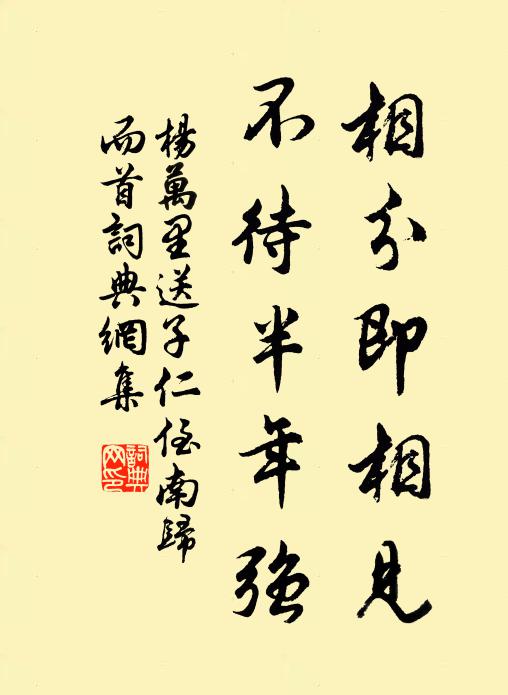 相分即相見
不待半年強
楊萬里送子仁侄南歸
而首詞典網集
詞典
网印